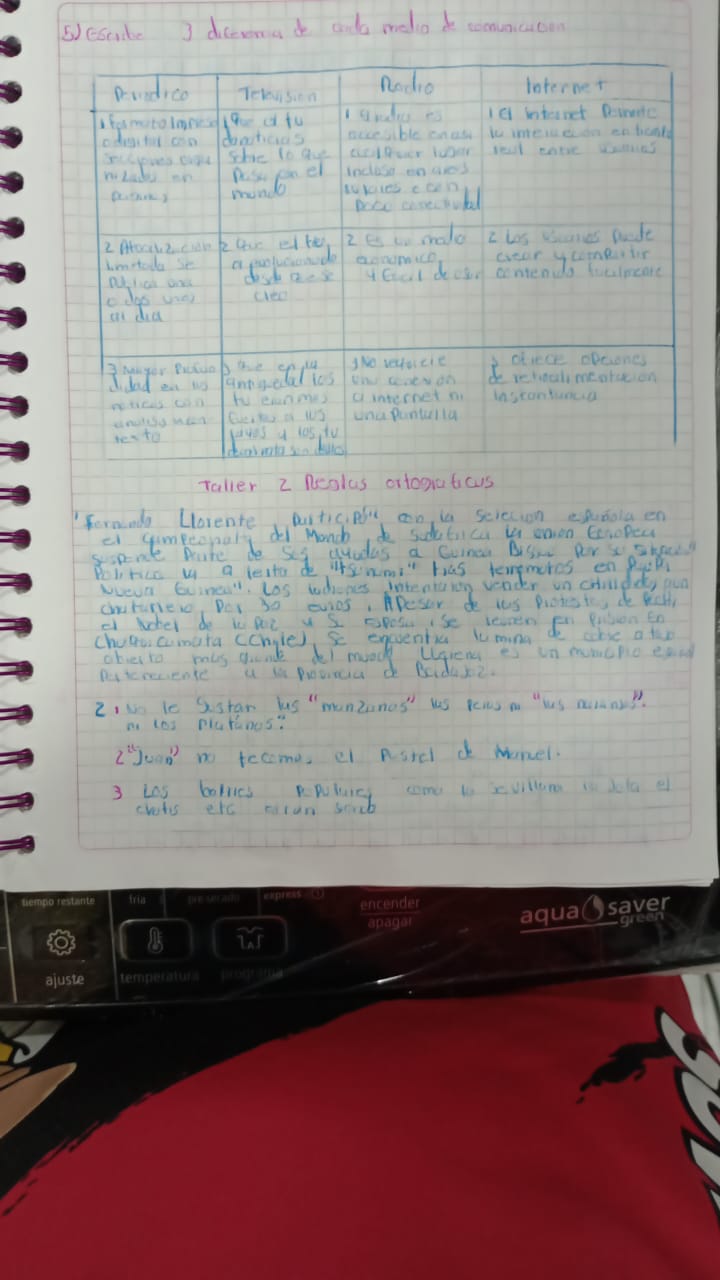 5) Escribe 3 diferencia de cada medio de comunicacion
Periodico Television Radio Internet
1 Formato Impreso
o digital con
secciones orga
nizadas en
1 Que el tu
da noticias
sobre lo que
Pasa en el
mundo
1 la radio es
accesible en casi
cualquier lugar
incluso en areas
rurales o con
poca conectividad
1 El internet Permite
la interaccion en tiempo
real entre usuarios
2 Actualizacion
limitada se
publica una
o dos veces
al dia
2 Que el tv,
a evolucionado
desde que se
creo
2 Es un medio
economico,
y facil de usar
2 Los usuarios puede
crear y compartir
contenido facilmente
3 Mayor Profun
didad en las
noticias con
analisis en
texto
3 que en la
antiguedad los
tv eran mas
a los tv
3 No requiere
una conexion
a internet ni
una Pantalla
3 ofrece opciones
de retroalimentacion
instantanea
Taller 2 Reglas ortograficas
"Fernando Llorente Participa" con la selecion española en
el Campeonato del Mundo de Sudafrica la union Europea
suspende Parte de ses ayudas a Guinea Bisau Por su
Politica a lerta de "tsinami" tras terremotos en
Nueva Guinea". Los ladrones intentaron vender un
Por 30 euros, APesar de las Protestas de
el Nobel de la Paz y su esposa, se en Prision En
Chuquicamata (Chile) se encuentra la mina de cobre a
abierto mas grande del mundo Llerena es un municipio
Perteneciente a la Provincia de Badajoz.
2, no le gustan las "manzanas" las peras ni "las naranjas".
ni los Platános"
2 "Juan" no tecomas el Pastel de Manuel.
3 Los bailes Populares como la sevillana la Jota el
chotis etc
tiempo restante
fria
pre-secado
express
encender
apagar
aqua saver
green
ajuste
temperatura
programa